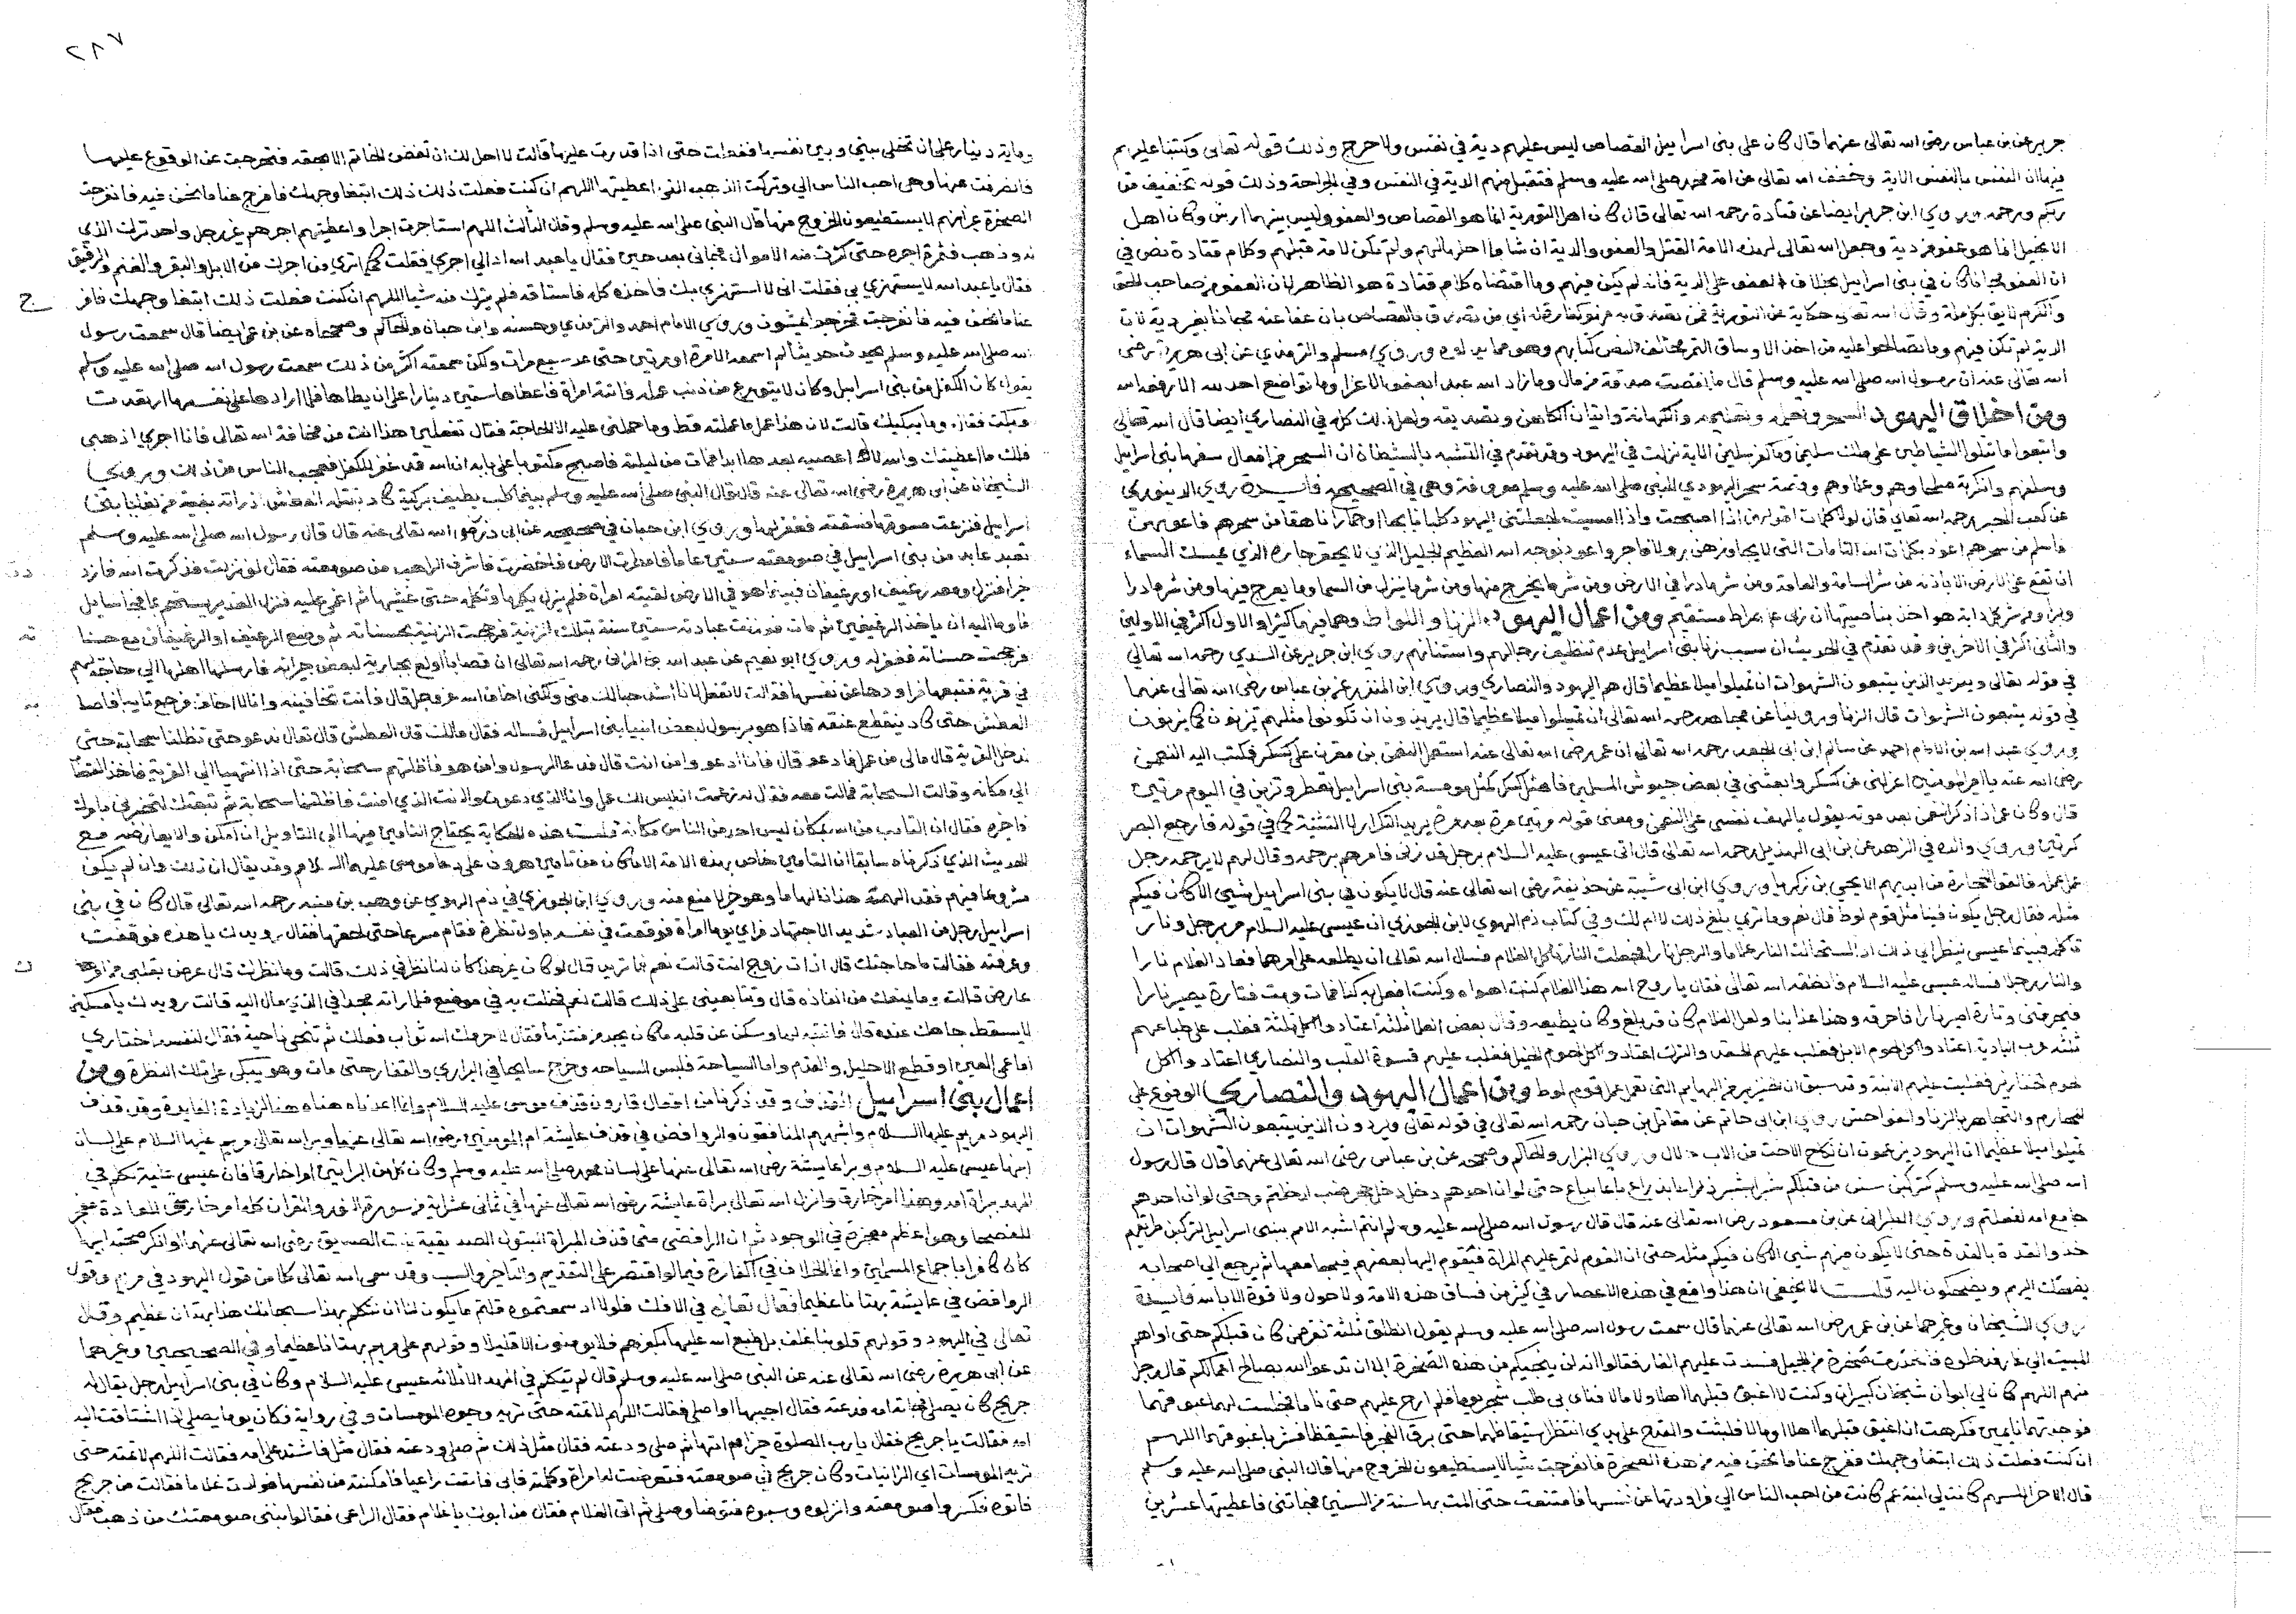 جرير عن بن عباس رضي الله تعالى عنهما قال كان على بني اسراييل القصاص ليس عليهم دية في نفس ولا جرح وذلك قوله تعالى وكتبنا عليهم
فيها ان النفس بالنفس الاية وخفف الله تعالى عن امة محمد صلى الله عليه وسلم فتقبل منهم الدية في النفس وفي الجراحة وذلك قوله تخفيف من
ربكم ورحمة وروي ابن جرير ايضا عن قتادة رحمه الله تعالى قال كان اهل التورية انما هو القصاص والعفو وليس بينهما ارش وكان اهل
الانجيل انما هو عفو دية وجعل الله تعالى لهذه الامة القتل والعفو والدية ان شاوا احلها لهم ولم تكن لامة قبلهم وكلام قتادة نص في
ان العفو كان في بني اسراييل بخلاف العفو على الدية فانه لم يكن فيهم وما اقتضاه كلام قتادة هو الظاهر لان العفو من صاحب الحق
الله تعالى عنه ان رسول الله صلى الله عليه وسلم قال ما نقصت صدقة من مال وما زاد الله عبدا بعفو الا عزا وما تواضع احد لله الا رفعه الله
ومن اخلاق اليهود السحر وتعلمه وتعليمه والكهانة واتيان الكاهن وتصديقه ولعل ذلك كله في النصاري ايضا قال الله تعالى
واتبعوا ما تتلوا الشياطين على ملك سليمن وما كفر سليمن الاية نزلت في اليهود وقد تقدم في التشبه بالشيطان ان السحر من افعال سفها بني اسراييل
عن كعب الحبر رحمه الله تعالى قال لولا كلمات اقولهن اذا اصبحت واذا امسيت لجعلتني اليهود كلبا نابحا او حمارا ناهقا من سحرهم فاعوذ بهن
فاسلم من سحرهم اعوذ بكلمات الله التامات التي لا يجاوزهن بر ولا فاجر واعوذ بوجه الله العظيم الجليل الذي لا يحقر جاره الذي يمسك السماء
ان تقع على الارض الا باذنه من شر السامة والعامة ومن شر ما ذرا في الارض ومن شر ما يخرج منها ومن شر ما ينزل من السما وما يعرج فيها ومن شر ما ذرا
وبرا ومن شر كل دابة هو اخذ بناصيتها ان ربي على صراط مستقيم ومن اعمال اليهود الزنا واللواط وهما فيهما كثير والاول اكثر في الاولين
والثاني اكثر في الاخرين وقد تقدم في الحديث ان سبب زنا بني اسراييل عدم تنظيف رجالهم واستنانهم روي ابن جرير عن السدي رحمه الله تعالى
في قوله تعالى ويريد الذين يتبعون الشهوات ان تميلوا ميلا عظيما قال هم اليهود والنصاري وروي ابن المنذر عن بن عباس رضي الله تعالى عنهما
في قوله يتبعون الشهوات قال الزنا وروينا عن مجاهد رحمه الله تعالى ان تميلوا ميلا عظيما قال يريدون ان تكونوا مثلهم تزنون كما يزنون
وروي عبد الله بن الامام احمد عن سالم ابن ابي الجعد رحمه الله تعالى ان عمر رضي الله تعالى عنه استعمل النعمن بن مقرن على كسكر فكتب اليه النعمن
رضي الله عنه يا امير المومنين اعزلني عن كسكر وابعثني في بعض جيوش المسلمين فانما مثل كسكر كمثل مومسة بني اسراييل تعطر وتزين في اليوم مرتين
قال وكان عمر اذا ذكر النعمن بعد موته يقول يا لهف نفسي على النعمن ومعنى قوله مرتين مرة بعد مرة يريد التكرار لا التثنية كما في قوله فارجع البصر
كرتين وروي والده في الزهد عن بن ابي الهذيل رحمه الله تعالى قال اتي عيسى عليه السلام برجل قد زنى فامرهم برجمه وقال لهم لا يرجمه رجل
عمل عمله فالقوا الحجارة من ايديهم الا يحيى بن زكريا وروي ابن ابي شيبة عن حذيفة رضي الله تعالى عنه قال لا يكون في بني اسراييل شيي الا كان فيكم
مثله فقال رجل يكون فينا مثل قوم لوط قال نعم وما تري بلغ ذلك لا ام لك وفي كتاب ذم الهوي لابن الجوزي ان عيسى عليه السلام مر برجل ونار
والنار رجلا فساله عيسى عليه السلام فانطقه الله تعالى فقال يا روح الله هذا الغلام كنت اهواه وكنت افعل به كذا فمات ومت فتارة يصير نارا
فيحرقني وتارة اصير نارا فاحرقه وهذا عذابنا ولعل الغلام كان قد بلغ وكان يطيعه وقال بعض العلما ثلثة اعتادوا اكل ثلثة فغلب على طباعهم
ثلثة عرب البادية اعتادوا اكل لحوم الابل فغلب عليهم الحقد والترك اعتادوا اكل لحوم الخيل فغلب عليهم قسوة القلب والنصاري اعتادوا اكل
لحوم خنازير فغلبت عليهم الدياثة وقد سبق ان الخنزير من البهايم التي تعمل عمل قوم لوط ومن اعمال اليهود والنصاري الوقوع على
المحارم والتجاهر بالزنا والفواحش روي ابن ابي حاتم عن مقاتل بن حيان رحمه الله تعالى في قوله تعالى ويريد الذين يتبعون الشهوات ان
تميلوا ميلا عظيما ان اليهود يزعمون ان نكاح الاخت من الاب حلال وروي البزار والحاكم وصححه عن بن عباس رضي الله تعالى عنهما قال قال رسول
الله صلى الله عليه وسلم لتركبن سنن من قبلكم شبرا بشبر وذراعا بذراع وباعا بباع حتى لو ان احدهم دخل جحر ضب لدخلتم وحتى لو ان احدهم
جامع امه لفعلتم وروي الطبراني عن بن مسعود رضي الله تعالى عنه قال قال رسول الله صلى الله عليه وسلم انتم اشبه الامم ببني اسراييل لتركبن طريقهم
حذو القذة بالقذة حتى لا يكون منهم شيي الا كان فيكم مثله حتى ان القوم لتمر عليهم المراة فيقوم اليها بعضهم فيجامعها ثم يرجع الي اصحابه
يضحك اليهم ويضحكون اليه قلت لا يخفى ان هذا واقع في هذه الاعصار في كثير من فساق هذه الامة ولا حول ولا قوة الا بالله
روي الشيخان وغيرهما عن بن عمر رضي الله تعالى عنهما قال سمعت رسول الله صلى الله عليه وسلم يقول انطلق ثلثة نفر ممن كان قبلكم حتى اواهم
المبيت الي غار فدخلوه فانحدرت صخرة من الجبل فسدت عليهم الغار فقالوا انه لن ينجيكم من هذه الصخرة الا ان تدعوا الله بصالح اعمالكم قال رجل
منهم اللهم كان لي ابوان شيخان كبيران وكنت لا اغبق قبلهما اهلا ولا مالا فناى بي طلب شجر يوما فلم ارح عليهم حتى ناما فحلبت لهما غبوقهما
فوجدتهما نايمين فكرهت ان اغبق قبلهما اهلا او مالا فلبثت والقدح على يدي انتظر استيقاظهما حتى برق الفجر فاستيقظا فشربا غبوقهما اللهم
ان كنت فعلت ذلك ابتغا وجهك ففرج عنا ما نحن فيه من هذه الصخرة فانفرجت شيا لا يستطيعون الخروج منها قال النبي صلى الله عليه وسلم
قال الاخر اللهم كانت لي ابنة عم كانت من احب الناس الي فراودتها عن نفسها فامتنعت حتى المت بها سنة من السنين فجاتني فاعطيتها عشرين
٢٨٧
وماية دينار على ان تخلي بيني وبين نفسها ففعلت حتى اذا قدرت عليها قالت لا احل لك ان تفض الخاتم الا بحقه فتحرجت عن الوقوع عليها
فانصرفت عنها وهي احب الناس الي وتركت الذهب الذي اعطيتها اللهم ان كنت فعلت ذلك ابتغا وجهك فافرج عنا ما نحن فيه فانفرجت
الصخرة غير انهم لا يستطيعون الخروج منها قال النبي صلى الله عليه وسلم وقال الثالث اللهم استاجرت اجرا واعطيتهم اجرهم غير رجل واحد ترك الذي
له وذهب فثمرت اجره حتى كثرت منه الاموال فجاني بعد حين فقال يا عبد الله اد الي اجري فقلت كل ما تري من اجرك من الابل والبقر والغنم والرقيق
فقال يا عبد الله لا تستهزي بي فقلت اني لا استهزي بك فاخذه كله فاستاقه فلم يترك منه شيا اللهم ان كنت فعلت ذلك ابتغا وجهك فافر
ج
عنا ما نحن فيه فانفرجت فخرجوا يمشون وروي الامام احمد والترمذي وحسنه وابن حبان والحاكم وصححاه عن بن عمر ايضا قال سمعت رسول
الله صلى الله عليه وسلم يحدث حديثا لم اسمعه الا مرة او مرتين حتى عد سبع مرات ولكن سمعته اكثر من ذلك سمعت رسول الله صلى الله عليه وسلم
يقول كان الكفل من بني اسراييل وكان لا يتورع من ذنب عمله فاتته امراة فاعطاها ستين دينارا على ان يطاها فلما ارادها على نفسها ارتعدت
وبكت فقال وما يبكيك قالت لان هذا عمل ما عملته قط وما حملني عليه الا الحاجة فقال تفعلين هذا انت من مخافة الله تعالى فانا احري اذهبي
فلك ما اعطيتك ووالله لا اعصيه بعدها ابدا فمات من ليلته فاصبح مكتوبا على بابه ان الله قد غفر للكفل فعجب الناس من ذلك وروي
الشيخان عن ابي هريرة رضي الله تعالى عنه قال قال النبي صلى الله عليه وسلم بينما كلب يطيف بركية كاد يقتله العطش اذ راته بغية من بغايا بني
اسراييل فنزعت موقها فسقته فغفر لها وروي ابن حبان في صحيحه عن ابي ذر رضي الله تعالى عنه قال قال رسول الله صلى الله عليه وسلم
تعبد عابد من بني اسراييل في صومعته ستين عاما فامطرت الارض فاخضرت فاشرف الراهب من صومعته فقال لو نزلت فذكرت الله فازدد
خيرا فنزل ومعه رغيف او رغيفان فبينما هو في الارض لقيته امراة فلم يزل يكلمها وتكلمه حتى غشيها ثم اغمي عليه فنزل الغدير يستحم فجا سايل
فاوما اليه ان ياخذ الرغيفين ثم مات فوزنت عبادته ستين سنة بتلك الزنية فرجحت الزنية بحسناته ثم وضع الرغيف او الرغيفان مع حسنا
ته
فرجحت حسناته فغفر له وروي ابو نعيم عن عبد الله بن المزني رحمه الله تعالى ان قصابا اولع بجارية لبعض جيرانه فارسلها اهلها الي حاجة لهم
في قرية فتبعها فراودها عن نفسها فقالت لا تفعل لانا اشد حبا لك مني ولكني اخاف الله عز وجل قال فانت تخافينه وانا لا اخافه فرجع تايبا فاصا
به
العطش حتى كاد ينقطع عنقه فاذا هو برسول لبعض انبيا بني اسراييل فساله فقال مالك قال العطش قال تعال ندعو حتى تظلنا سحابة حتى
ندخل القرية قال مالي من عمل فادعو قال فانا ادعو وامن انت قال فدعا الرسول وامن هو فاظلتهم سحابة حتى اذا انتهيا الي القرية فاخذ القصا
الي مكانه وقالت السحابة فمالت معه فقال له زعمت ان ليس لك عمل وانا الذي دعوت وانت الذي امنت فاظلتنا سحابة ثم تبعتك لتخبرني ما امرك
فاخبره فقال ان التايب من الله بمكان ليس احد من الناس مكانه قلت هذه الحكاية يحتاج التامين فيها الي التاويل ان امكن والا يعارضه مع
الحديث الذي ذكرناه سابقا ان التامين خاص بهذه الامة الا ما كان من تامين هرون على دعا موسى عليهما السلام وقد يقال ان ذلك وان لم يكن
مشروعا فيهم فقد الهمته هذا الهاما وهو خير لا منع منه وروي ابن الجوزي في ذم الهوي عن وهب بن منبه رحمه الله تعالى قال كان في بني
اسراييل رجل من العباد شديد الاجتهاد فراي يوما امراة فوقعت في نفسه باول نظرة فقام مسرعا حتى لحقها فقال رويدك يا هذه فوقفت
وعرفته فقالت ما حاجتك قال اذات زوج انت قالت نعم فما تريد قال لو كان غير هذا كان لنا نظر في ذلك قالت وما نظرك قال عرض بقلبي من امرك
عارض قالت وما يمنعك من انفاذه قال وتتابعيني على ذلك قالت نعم فخلت به في موضع فلما راته مجدا في الذي مال اليه قالت رويدك يا مسكين
لا يسقط جاهك عنده قال فانتبه لها وسكن عن قلبه ما كان يجد من فتنتها فقال لا حرمك الله ثواب فعلك ثم تنحى ناحية فقال لنفسه اختاري
اما عمى العين او قطع الاحليل واما السياحة فلبس السياحة وخرج سايحا في البراري والقفار حتى مات وهو يبكي على تلك النظرة ومن
اعمال بني اسراييل القذف وقد ذكرنا من افعال قارون قذف موسى عليه السلام وانما اعدناه هنا لزيادة الفايدة وقد قذف
اليهود مريم عليها السلام واشبههم المنافقون والروافض في قذف عايشة ام المومنين رضي الله تعالى عنها وبرا الله تعالى مريم عليها السلام على لسان
ابنها عيسى عليه السلام وبرا عايشة رضي الله تعالى عنها على لسان محمد صلى الله عليه وسلم وكان كل من البراتين امرا خارقا فان عيسى عليه تكلم في
المهد ببراة امه وهذا امر خارق وانزل الله تعالى براة عايشة رضي الله تعالى عنها في ثماني عشر اية من سورة النور والقران كله امر خارق للعادة معجز
للفصحا وهو اعظم معجزة في الوجود ثم ان الرافضي متى قذف المراة البتول الصديقة بنت الصديق رضي الله تعالى عنهما او انكر صحبة ابيها
كان كافرا باجماع المسلمين وانما الخلاف في الكفارة فيما لو اقتصر على التقديم والتاخير والسب وقد سمى الله تعالى كلا من قول اليهود في مريم وقول
الروافض في عايشة بهتانا عظيما فقال تعالى في الافك فلولا اذ سمعتموه قلتم ما يكون لنا ان نتكلم بهذا سبحانك هذا بهتان عظيم وقال
تعالى في اليهود وقولهم قلوبنا غلف بل طبع الله عليها بكفرهم فلا يومنون الا قليلا وقولهم على مريم بهتانا عظيما وفي الصحيحين وغيرهما
عن ابي هريرة رضي الله تعالى عنه عن النبي صلى الله عليه وسلم قال لم يتكلم في المهد الا ثلاثة عيسى عليه السلام وكان في بني اسراييل رجل يقال له
جريج كان يصلي فجاته امه فدعته فقال اجيبها او اصلي فقالت اللهم لا تمته حتى تريه وجوه المومسات وفي رواية فكان يوما يصلي اذ اشتاقت اليه
امه فقالت يا جريج فقال يا رب الصلوة خير ام اتيانها ثم صلى ودعته فقال مثل ذلك ثم صلى ودعته فقال مثل فاشتد على امه فقالت اللهم لا تمته حتى
تريه المومسات اي الزانيات وكان جريج في صومعته فتعرضت له امراة وكلمته فابى فاتت راعيا فامكنته من نفسها فولدت غلاما فقالت من جريج
فاتوه فكسروا صومعته وانزلوه وسبوه فتوضا وصلى ثم اتى الغلام فقال من ابوك يا غلام فقال الراعي فقالوا نبني صومعتك من ذهب فقال